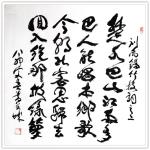 刘禹锡竹枝词
楚水巴山江雨多
巴人能唱本乡歌
今朝北客思归去
回入纥那披绿萝